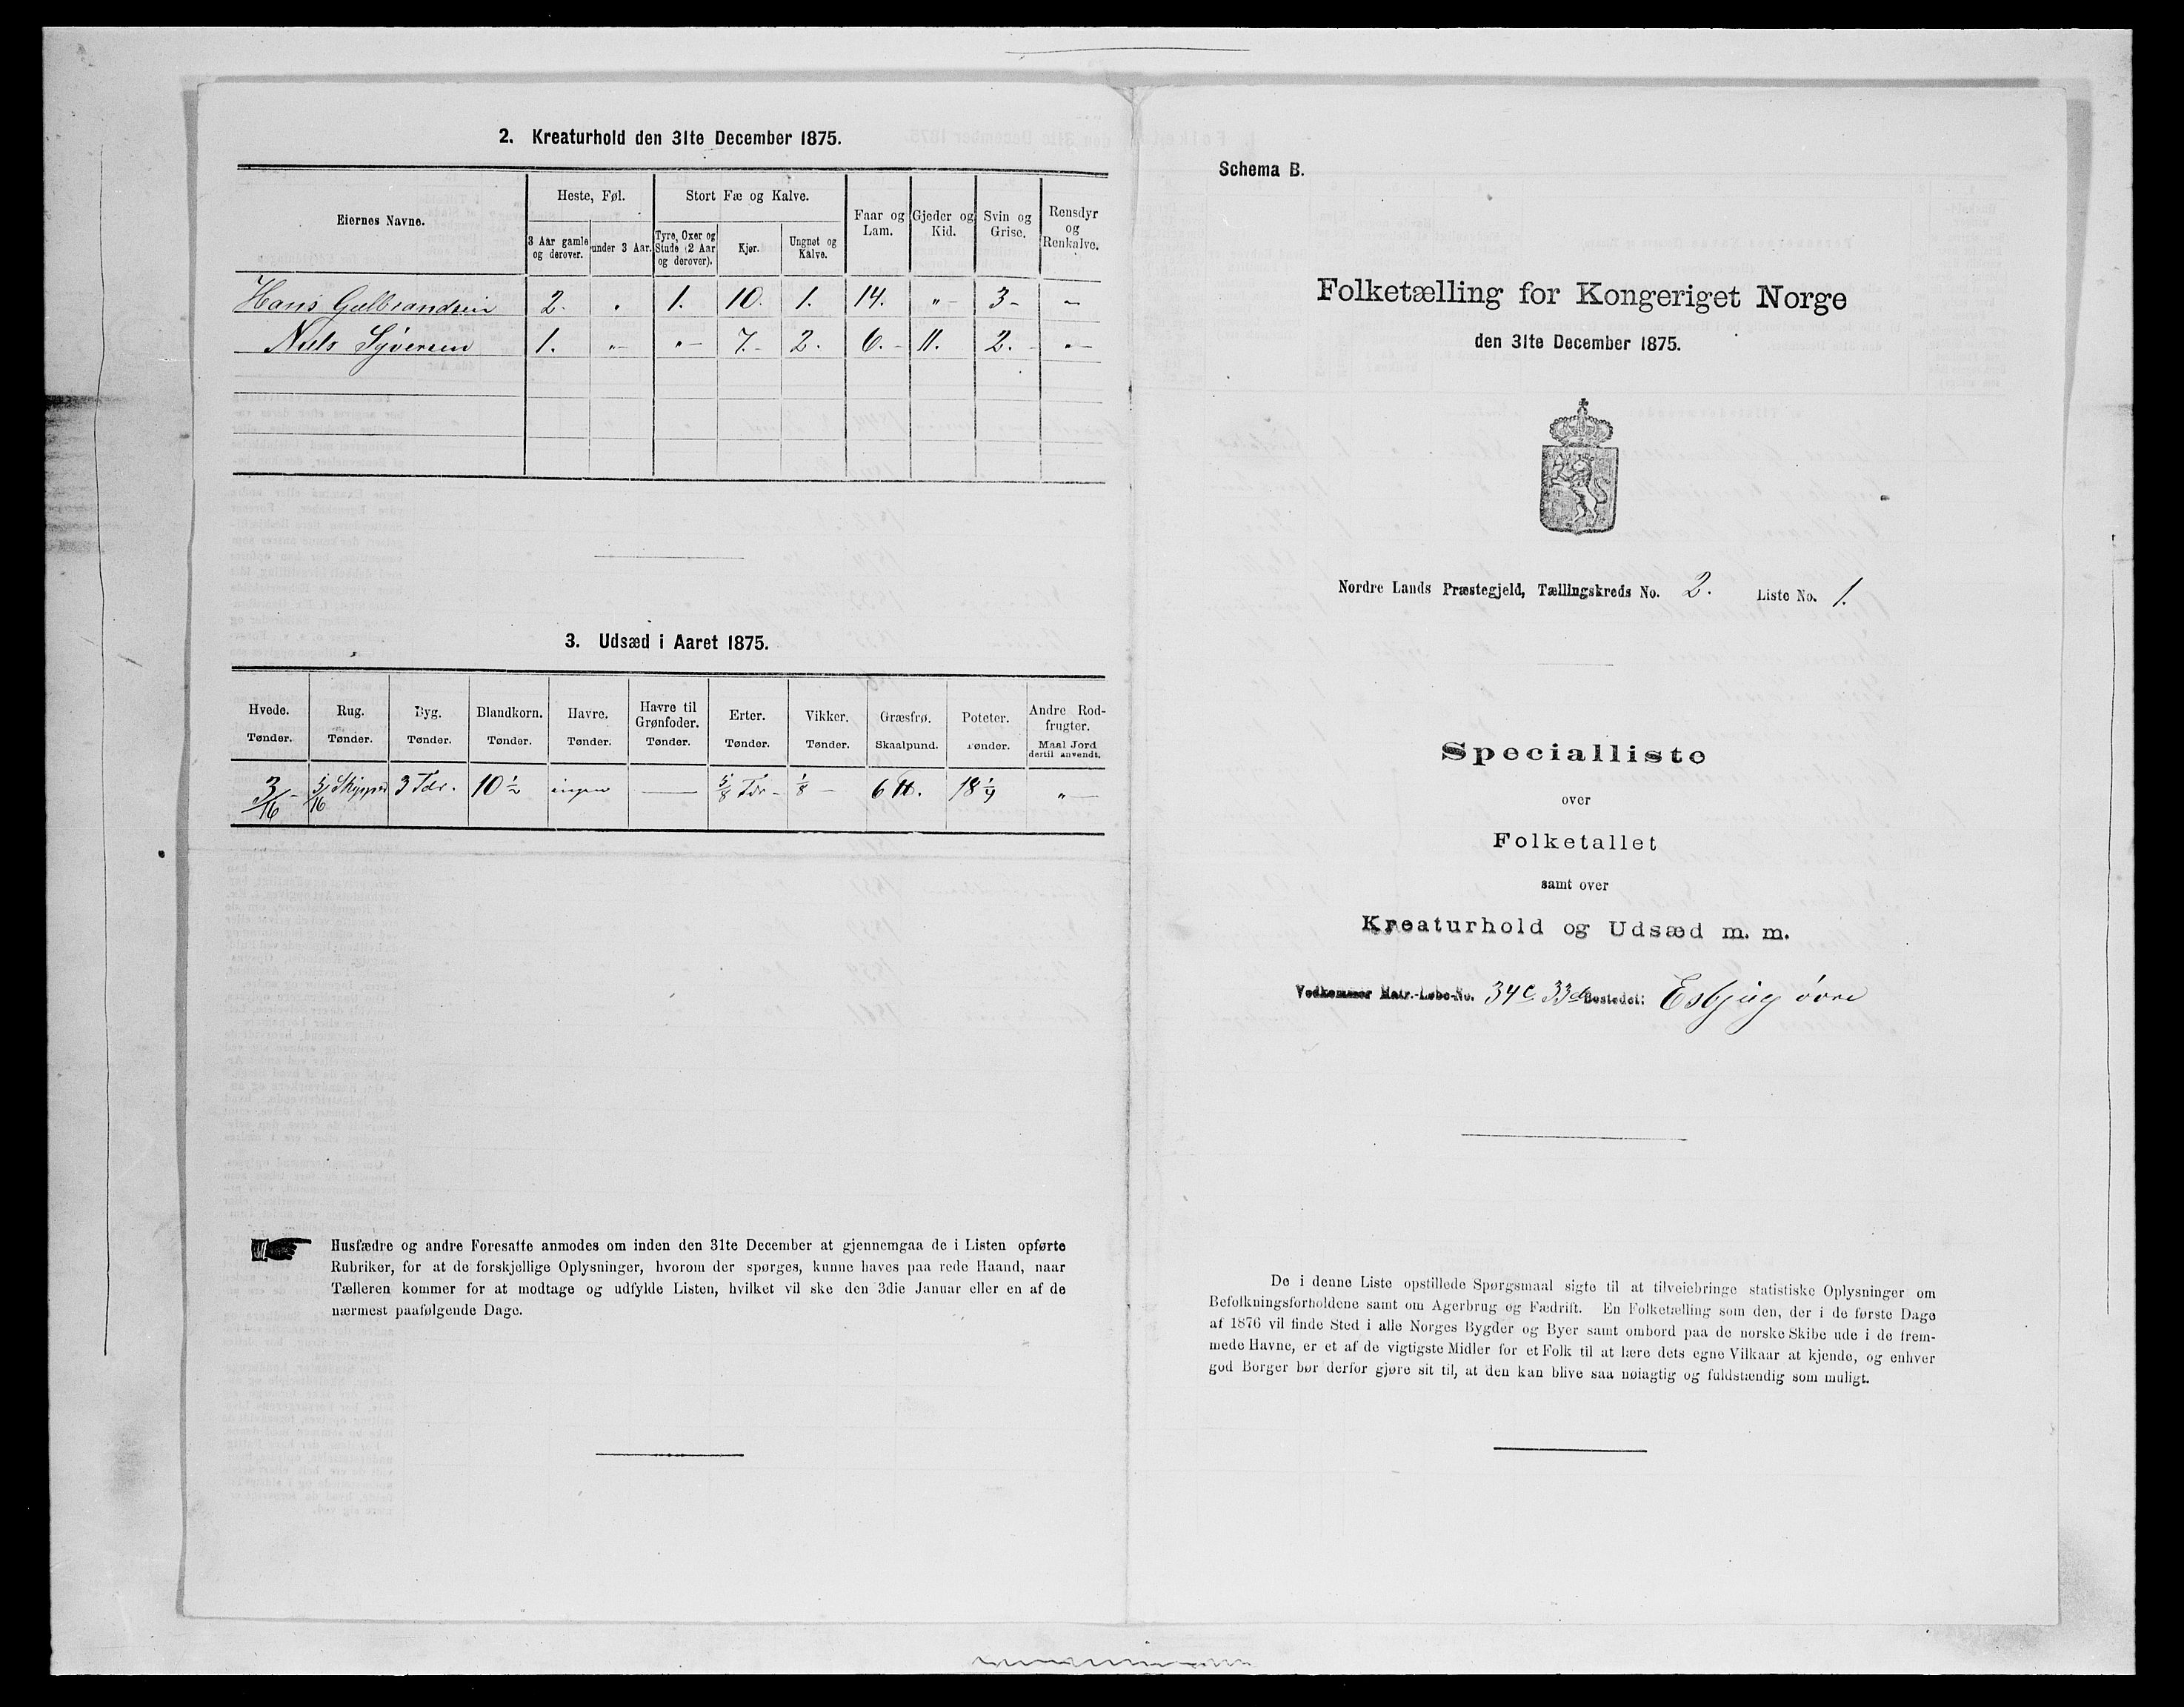 2. Kreaturhold den 31te December 1875.
Eiernes Navne.
Heste, Føl.
Stort Fæ og Kalve.
Faar og Lam.
Gjeder og Kid.
Svin og Grise.
Rensdyr og Renkalve.
3 Aar gamle og derover.
under 3 Aar.
Tyre, Oxer og Stude (2 Aar og derover).
Kjør.
Ungnøt og Kalve.
Hans Gulbrandsen 2. " 1. 10. 1. 14. "- 3- -
Niels Syversen 1. "- "- 7.- 2. 6.- 11. 2. "-
3. Udsæd i Aaret 1875.
Hvede. Rug. Byg. Blandkorn. Havre. Havre til Grønfoder. Erter. Vikker. Græsfrø. Poteter. Andre Rodfrugter.
Tønder. Tønder. Tønder. Tønder. Tønder. Tønder. Tønder. Tønder. Skaalpund. Tønder. Maal Jord dertil anvendt.
3/16 - 5/16 3 Tdr. 10 1/2 ingen — 5/8 Tdr - 1/8 - 6 ℔. 18 "-
Husfædre og andre Foresatte anmodes om inden den 31te December at gjennemgaa de i Listen opførte
Rubriker, for at de forskjellige Oplysninger, hvorom der spørges, kunne haves paa rede Haand, naar
Tælleren kommer for at modtage og udfylde Listen, hvilket vil ske den 3die Januar eller en af de
nærmest paafølgende Dage.
Schema B.
Folketælling for Kongeriget Norge
den 31te December 1875.
Nordre Lands Præstegjeld, Tællingskreds No. 2. Liste No. 1.
Specialliste
over
Folketallet
samt over
Kreaturhold og Udsæd m. m.
Vedkommer Matr.-Løbe-No. 34c 33d Bostedet: Esbjug övre
De i denne Liste opstillede Spørgsmaal sigte til at tilveiebringe statistiske Oplysninger om
Befolkningsforholdene samt om Agerbrug og Fædrift. En Folketælling som den, der i de første Dage
af 1876 vil finde Sted i alle Norges Bygder og Byer samt ombord paa de norske Skibe ude i de frem-
mede Havne, er et af de vigtigste Midler for et Folk til at lære dets egne Vilkaar at kjende, og enhver
god Borger bør derfor gjøre sit til, at den kan blive saa nøiagtig og fuldstændig som muligt.